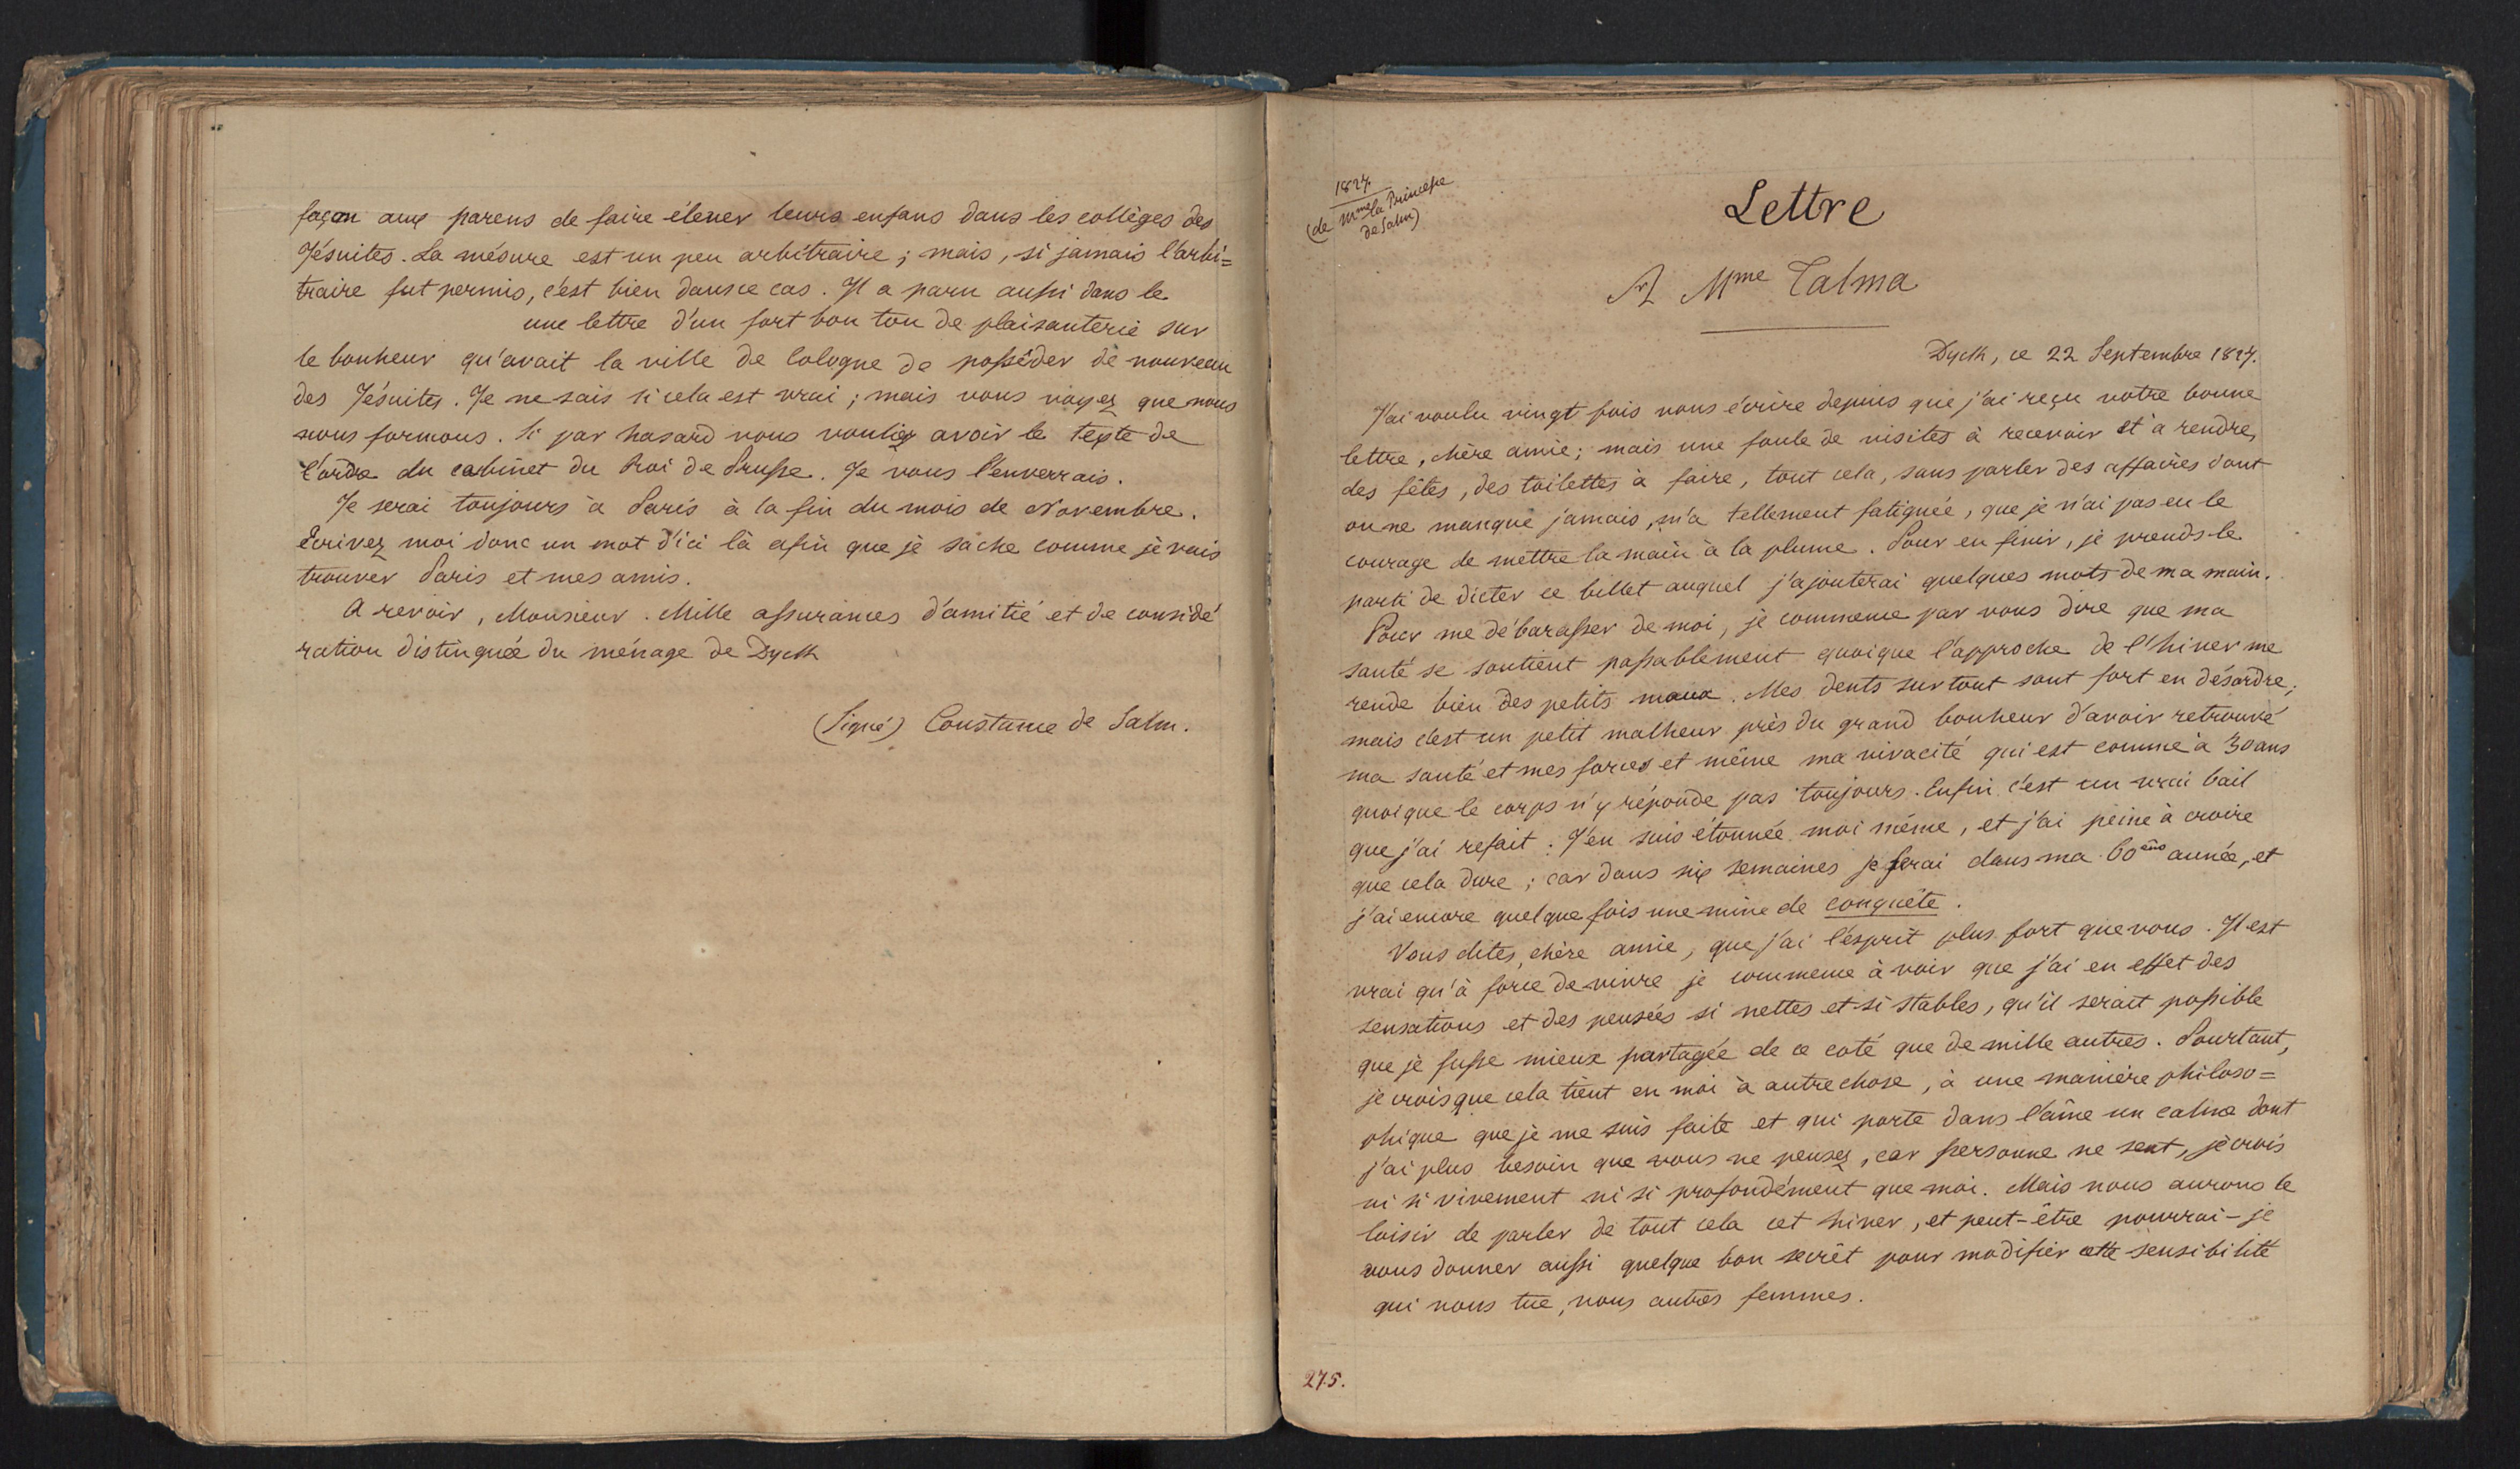 façon aux parens de faire élever leurs enfans dans les collèges des
Jésuites. La mésure est un peu arbitraire ; mais, si jamais l'arbi=
traire fut permis, c'est bien dans ce cas. Il a paru aussi dans le
une lettre d'un fort bon ton de plaisanterie sur
le bonheur qu'avait la ville de Cologne de posséder de nouveau
des Jésuites. Je ne sais si cela est vrai ; mais vous voyez que nous
nous formons. Si par hasard vous vouliez avoir le texte de
l'ordre du cabinet du Roi de Prusse. Je vous l'enverrais.
Je serai toujours à Paris à la fin du mois de Novembre.
Ecrivez moi donc un mot d'ici là afin que je sache comme je vais
trouver Paris et mes amis.
A revoir, Monsieur. Mille assurances d'amitié et de considé
ration distinguée du ménage de Dyck
(Signé) Constance de Salm.
1827.
(de Mme la Princesse
de Salm)
Lettre
A Mme Talma
Dyck, ce 22 Septembre 1827.
J'ai voulu vingt fois vous écrire depuis que j'ai reçu votre bonne
lettre, chère amie ; mais une foule de visites à recevoir et à rendre,
des fêtes, des toilettes à faire, tout cela, sans parler des affaires dont
on ne manque jamais, m'a tellement fatiguée, que je n'ai pas eu le
courage de mettre la main à la plume. Pour en finir, je prends le
parti de dicter ce billet auquel j'ajouterai quelques mots de ma main.
Pour me débarasser de moi, je commence par vous dire que ma
santé se soutient passablement quoique l'approche de l'hiver me
rende bien des petits maux. Mes dents surtout sont fort en désordre ;
mais c'est un petit malheur près du grand bonheur d'avoir retrouvé
ma santé et mes forces et même ma vivacité qui est comme à 30 ans
quoique le corps n'y réponde pas toujours. Enfin c'est un vrai bail
que j'ai refait : J'en suis étonnée moi même, et j'ai peine à croire
que cela dure ; car dans six semaines je serai dans ma 60ème année, et
j'ai encore quelque fois une mine de conquête.
Vous dites, chère amie, que j'ai l'esprit plus fort que vous. Il est
vrai qu'à force de vivre je commence à voir que j'ai en effet des
sensations et des pensées si nettes et si stables, qu'il serait possible
que je fusse mieux partagée de ce coté que de mille autres. Pourtant,
je crois que cela tient en moi à autre chose, à une manière philoso=
phique que je me suis faite et qui porte dans l'âme un calme dont
j'ai plus besoin que vous ne pensez, car personne ne sent, je crois
ni si vivement ni si profondément que moi. Mais nous aurons le
loisir de parler de tout cela cet hiver, et peut-être pourrai-je
vous donner aussi quelque bon secrêt pour modifier cette sensibilité
qui nous tue, nous autres femmes.
275.